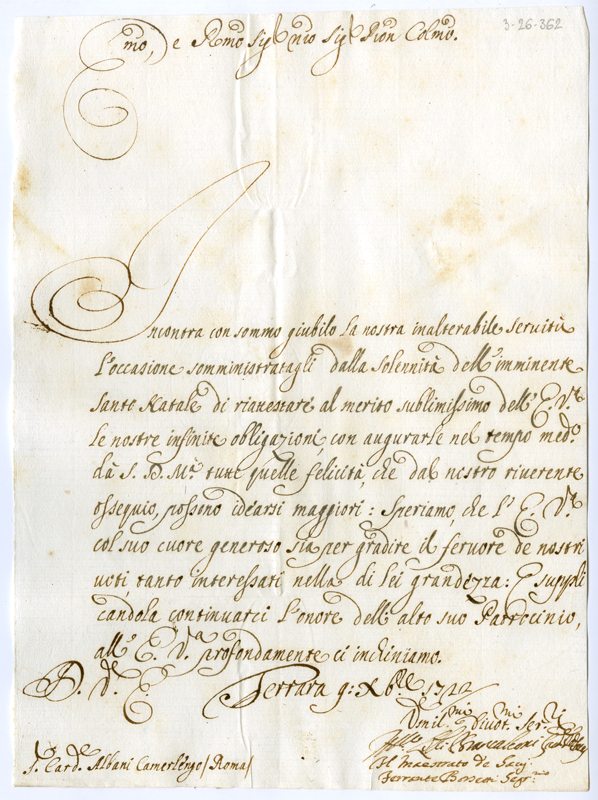 3-26-362
Emo, e Rmo Sig.r mio Sig.r Pron Colmo.
Incontra con sommo giubilo la nostra inalterabile servitù
l'occasione somministratagli dalla solennità dell'imminente
Santo Natale di rianestare al merito sublimissimo dell'E. V.ra
le nostre infinite obligazioni, con augurarle nel tempo med.o
da S. D. M.tà tutte quelle felicità, che dal nostro riverente
ossequio, possono idearsi maggiori: Speriamo, che l'E. V.ra
col suo cuore generoso sia per gradire il fervore de nostri
voti, tanto interessati nella di lei grandezza: E suppli
candola continuarci l'onore dell'alto suo Patrocinio,
all'E. V.ra profondamente ci inchiniamo.
D. V. E.
Ferrara 9: Xbre 1712
Umil.mi Divot.mi Ser.ri
Il Maestrato de Savj
S.r Card.e Albani Camerlengo / Roma /
Ferrante Segr.rio